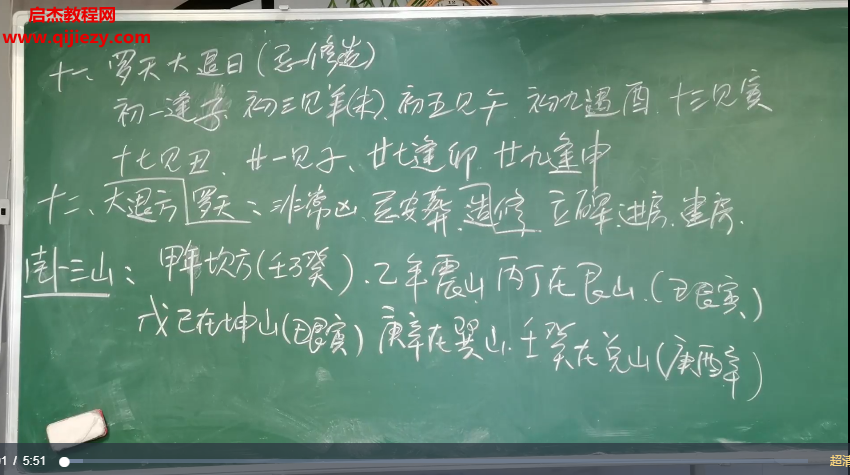 启杰教程网
www.qijiezy.com
十一、罗天大退日(忌修造)
初一逢子、初三见羊(未)、初五见午、初九遇酉、十三见寅
十七见丑、廿一见子、廿七逢卯、廿九逢申
十二、大退方 罗天：非常凶、忌安葬、造修、立碑、进房、建房、
卦三山：甲年坎方(壬子癸)、乙年震山、丙丁在艮山、(丑艮寅)
戊己在坤山(丑艮寅)庚辛在巽山、壬癸在兑山(庚酉辛)
/ 5:51
超清